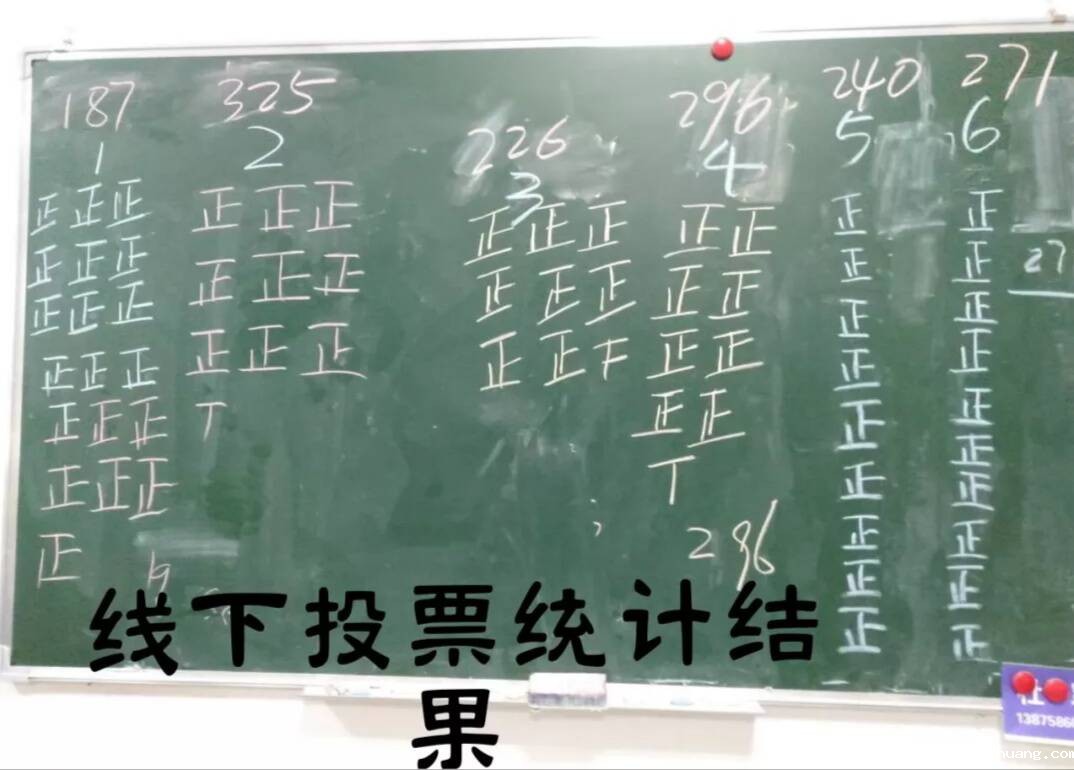 187 325 226 296 240 271
1 2 3 4 5 6
正正正 正正正 正正正 正正 正 正
正正正 正正正 正正正 正正 正 正
正正正 正正正 正正 正正 正 正
正正正 丅 正正 正 正
正正正 丅 正 正
正正正 正 正
正 正 正
正 正
正 正
正 正
27
296
线下投票统计结
果
1387586